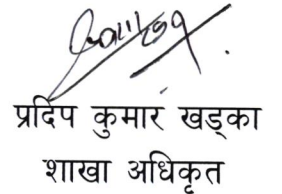 प्रदिप कुमार खड्का
शाखा अधिकृत